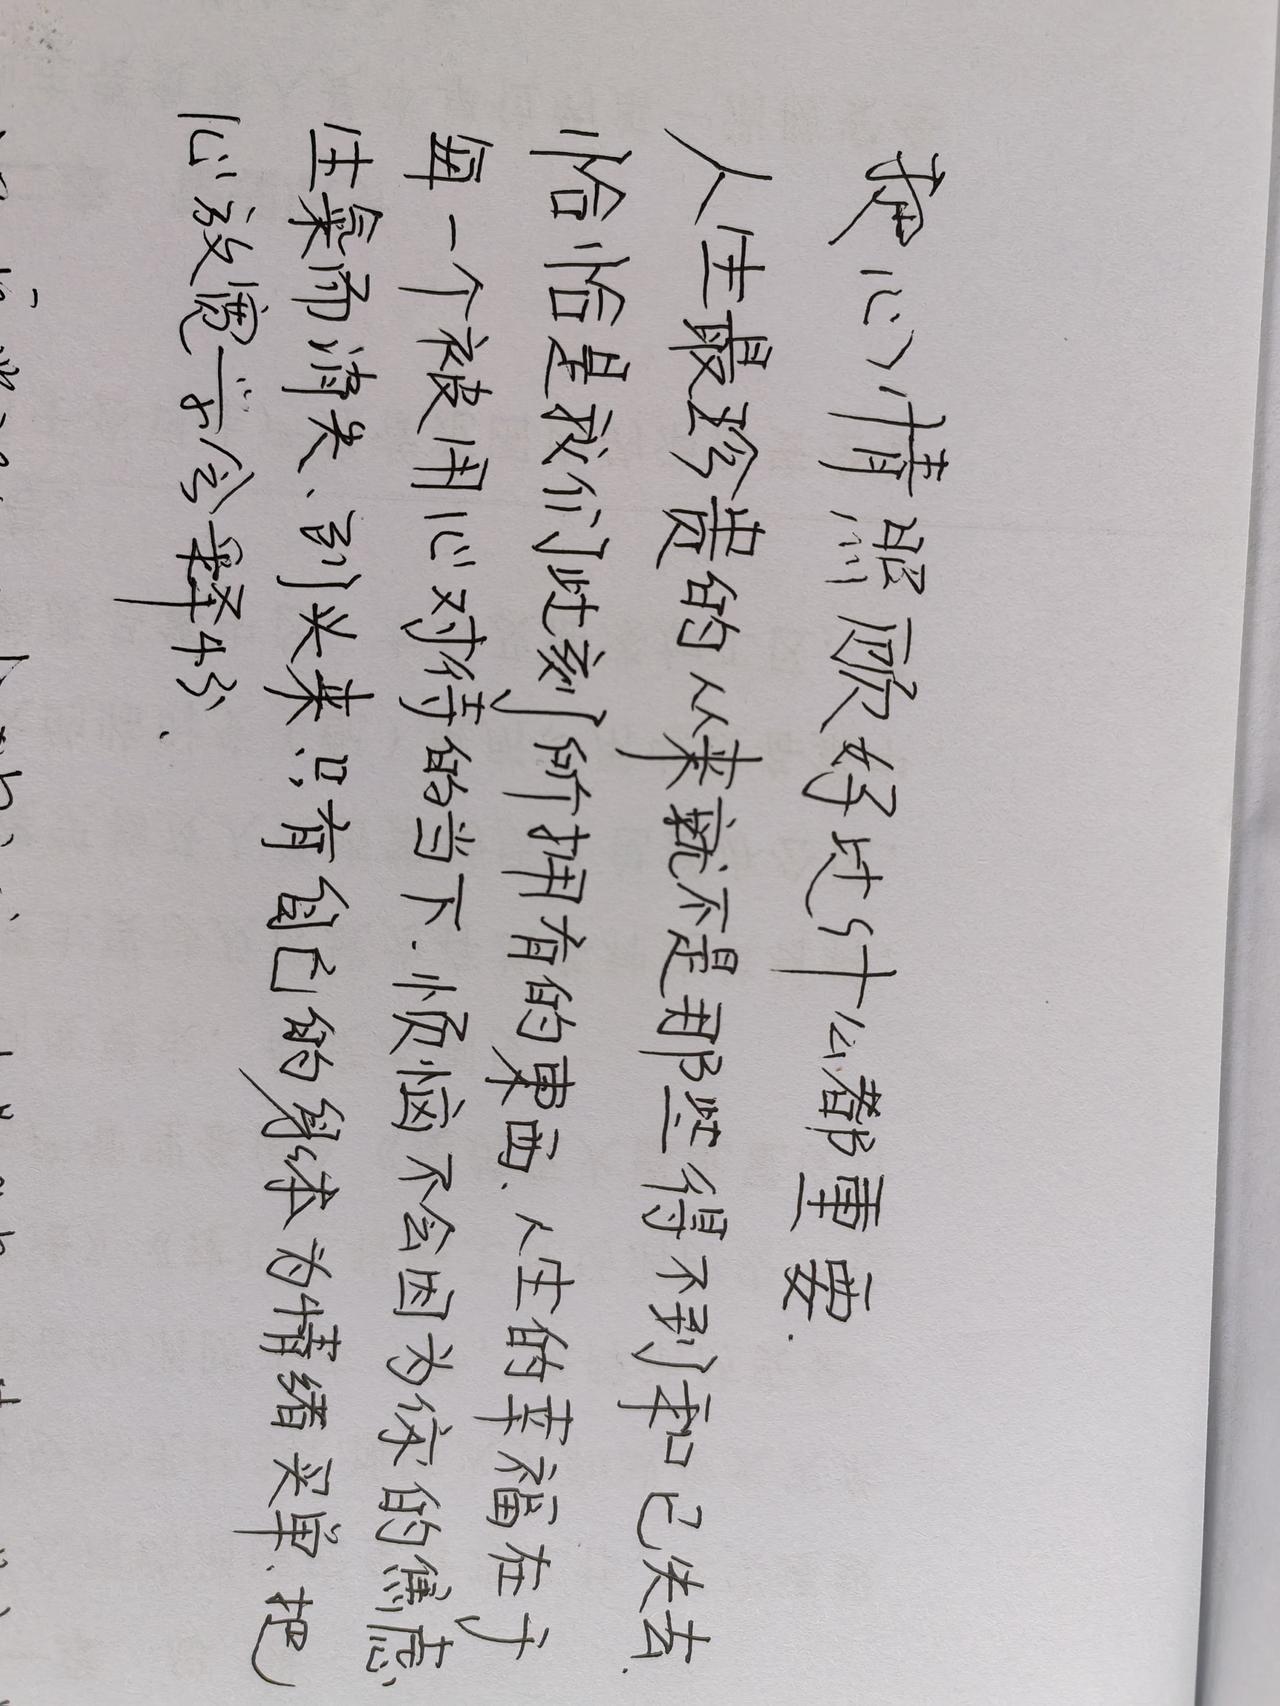 把心情照顾好比什么都重要.
人生最珍贵的从来就不是那些得不到和已失去.
恰恰是我们此刻所拥有的东西.人生的幸福在于
每一个被用心对待的当下.烦恼不会因为你的焦虑、
生氣而消失、到头来只有自己的身体为情绪买单、把
心放宽、才会释怀.